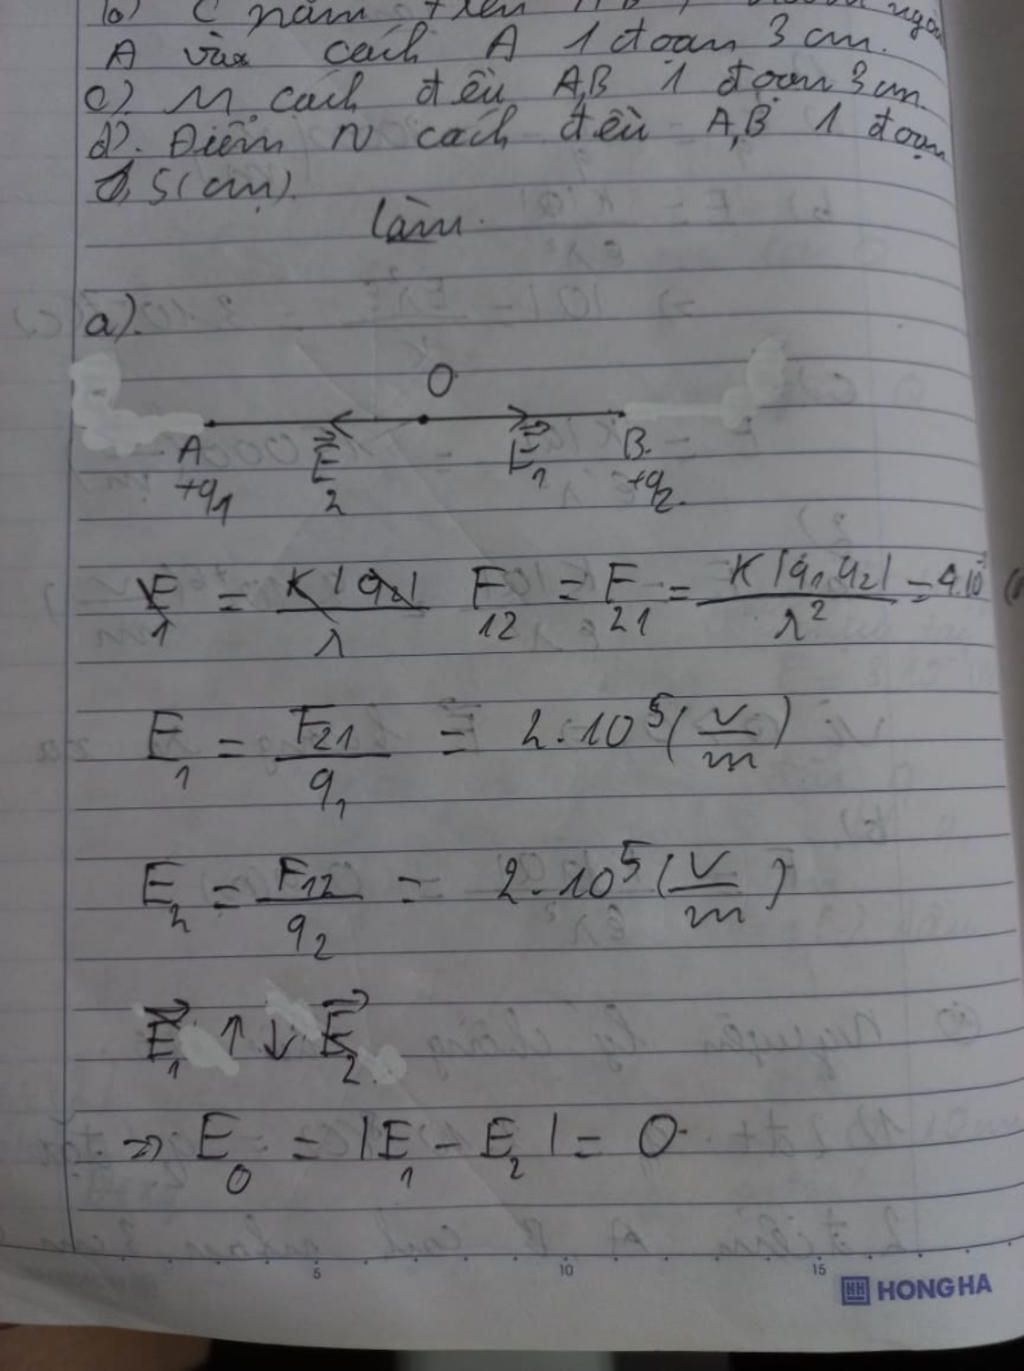 b) C nằm trên AB, ngoài
A và cách A 1 đoạn 3 cm.
c). M cách đều A,B 1 đoạn 3 cm
d). Điểm N cách đều A,B 1 đoạn
5(cm).
làm.
a).
O
A B
+q₁ E⃗₂ E⃗₁ +q₂
E₁ = K|q₂| / r F₁₂ = F₂₁ = K|q₁q₂| / r² = 4.10
E₁ = F₂₁ / q₁ = 2.10⁵ (V/m)
E₂ = F₁₂ / q₂ = 2.10⁵ (V/m)
E⃗₁ ↑↓ E⃗₂
=> E₀ = |E₁ - E₂| = 0
5 10 15
HONG HA